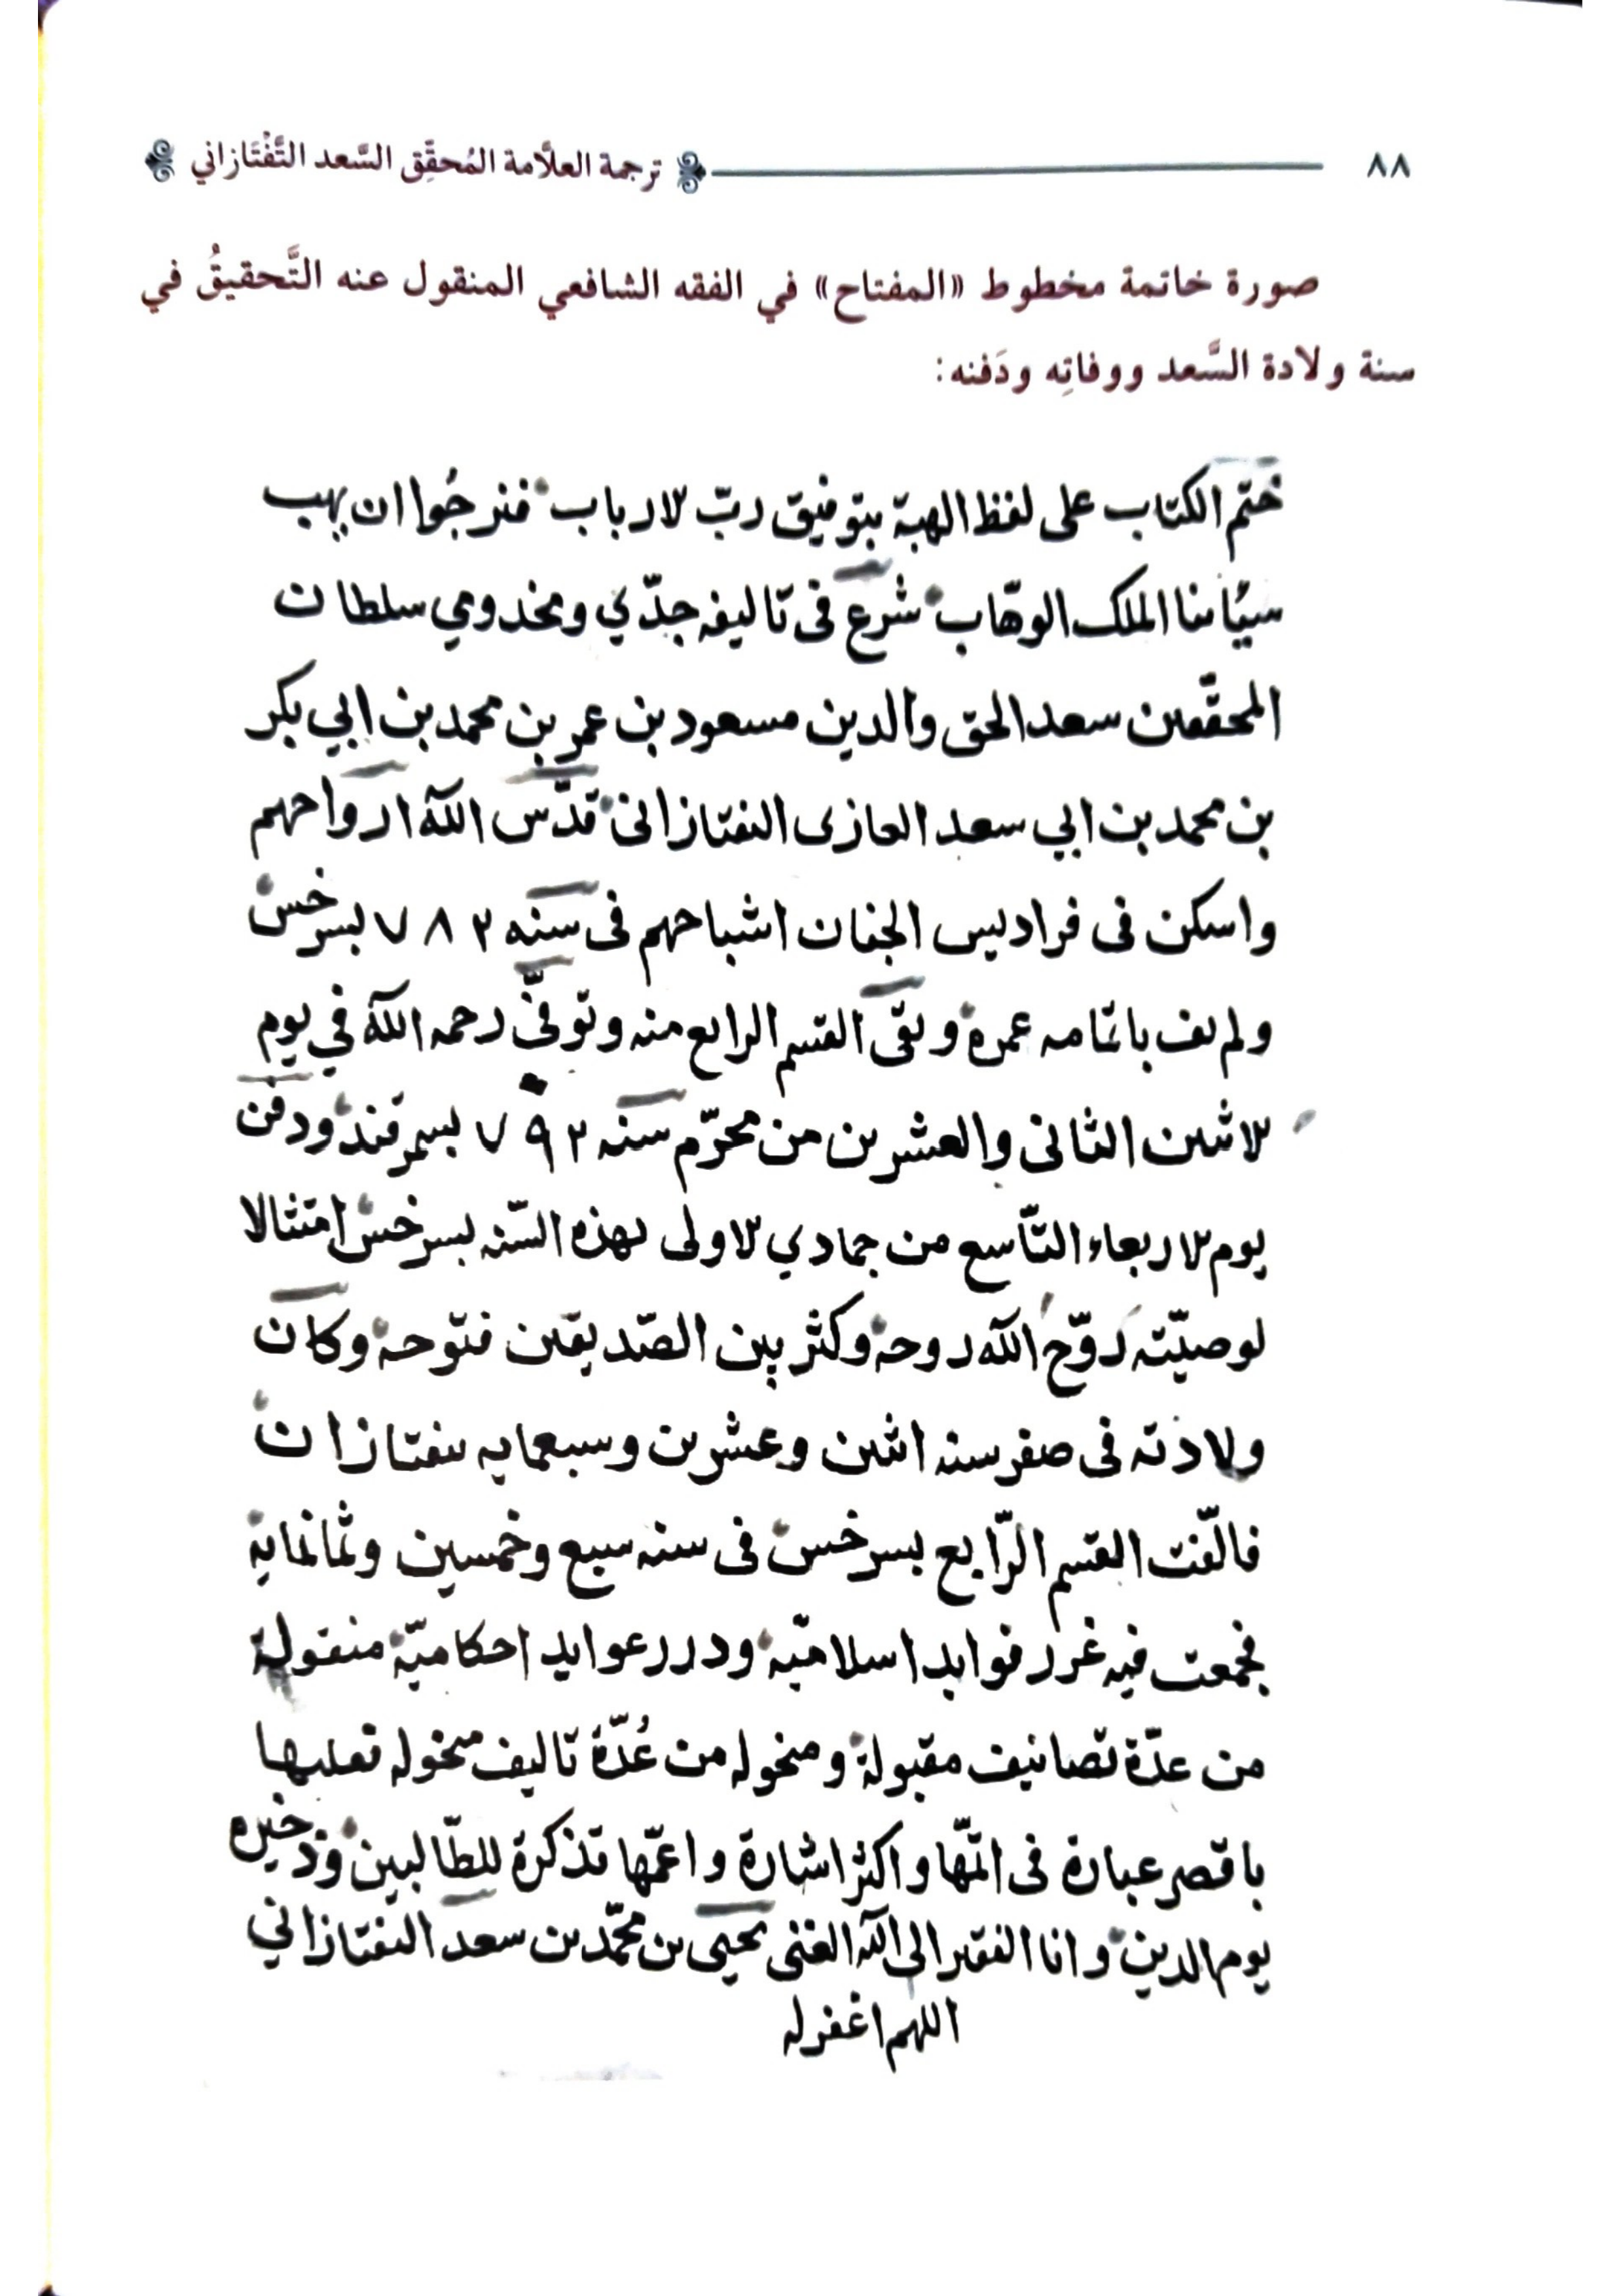 ٨٨ ترجمة العلَّامة المُحقِّق السَّعد التَّفْتَازاني
صورة خاتمة مخطوط «المفتاح» في الفقه الشافعي المنقول عنه التَّحقيقُ في
سنة ولادة السَّعد ووفاتِه ودَفنه:
ختم الكتاب على لفظ الهبة بتوفيق ربّ الارباب فنرجُوا ان يهب
سيّاتنا الملك الوهّاب شرع فى تاليفه جدّي ومخدومي سلطان
المحققين سعد الحق والدين مسعود بن عمر بن محمد بن ابي بكر
بن محمد بن ابي سعد الغازى التفتازانى قدّس الله ارواحهم
واسكن فى فراديس الجنان اشباحهم فى سنه ٧٨٢ بسرخس
ولم يف باتمامه عمره وبقى القسم الرابع منه وتوفّي رحمه الله في يوم
الاثنين الثانى والعشرين من محرّم سنه ٧٩٢ بسمرقند ودفن
يوم الاربعاء التّاسع من جمادي الاولى لهذه السّنه بسرخس امتثالا
لوصيّته روّح الله روحه وكثر بين الصّديقين فتوحه وكان
ولادته فى صفر سنه اثنين وعشرين وسبعمايه بتفتازان
فالّفت القسم الرّابع بسرخس فى سنه سبع وخمسين وثمانماية
فجمعت فيه غرر فوايد اسلاميّه ودرر عوايد احكاميّة منقولة
من عدّة تصانيف مقبولة ومنخوله من عُدّة تاليف منخوله
باقصر عبارة فى اتمّها واكثر اشارة واعمّها تذكرة للطّالبين وذخيره
يوم الدين وانا الفقير الى الله الغنى يحيى بن محمّد بن سعد التفتازاني
اللهم اغفر له